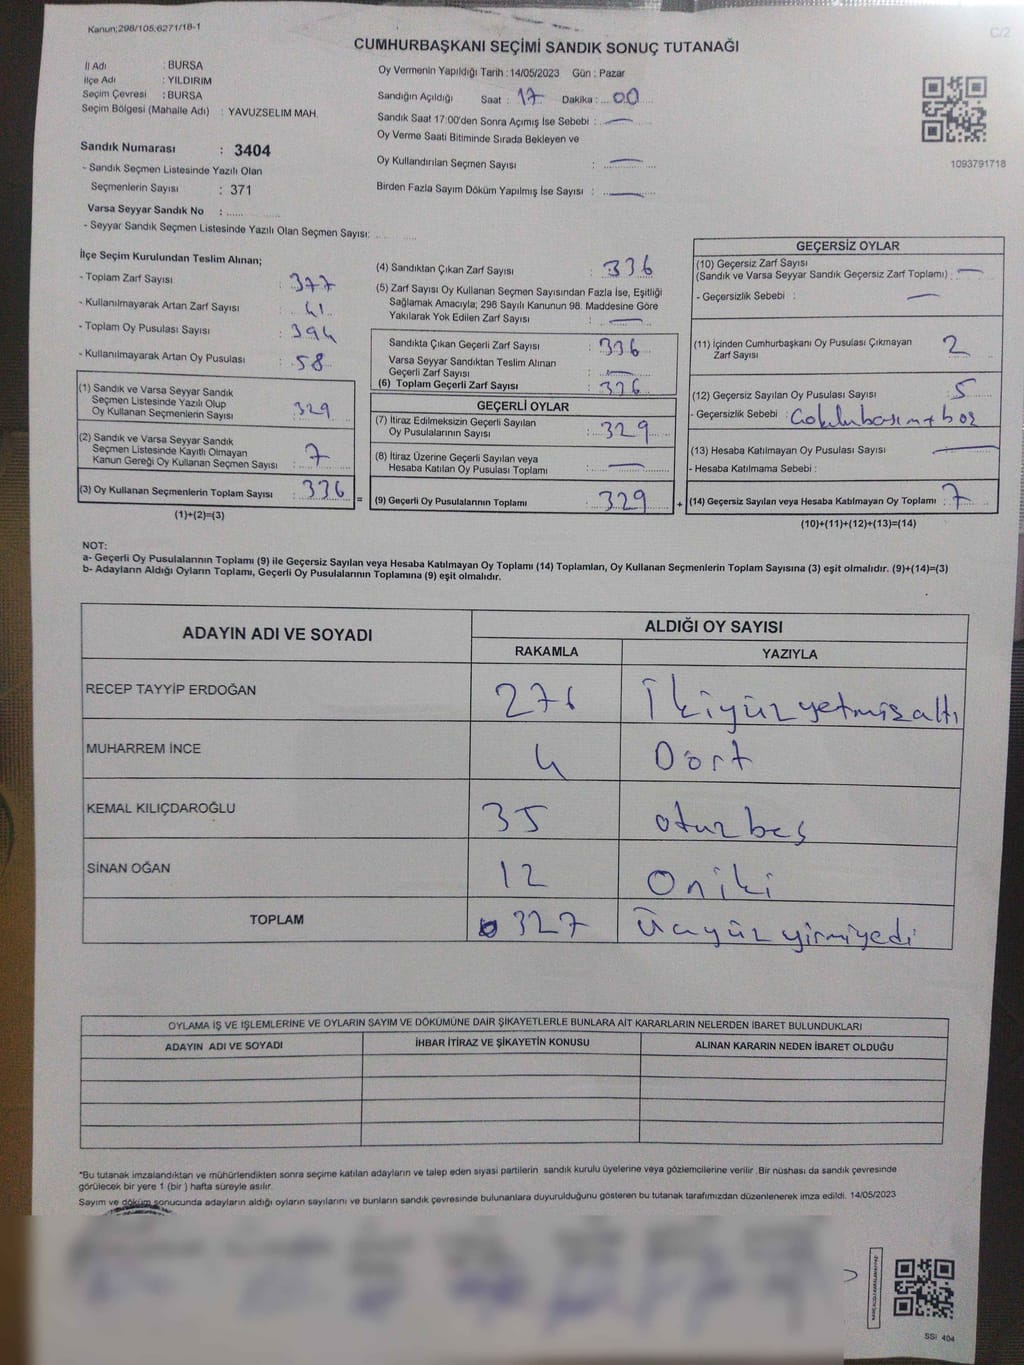 Kanun;298/105,6271/18-1
C/2
CUMHURBAŞKANI SEÇİMİ SANDIK SONUÇ TUTANAĞI
İl Adı : BURSA
İlçe Adı : YILDIRIM
Seçim Çevresi : BURSA
Seçim Bölgesi (Mahalle Adı) : YAVUZSELIM MAH.
Sandık Numarası : 3404
- Sandık Seçmen Listesinde Yazılı Olan
Seçmenlerin Sayısı : 371
Varsa Seyyar Sandık No :
- Seyyar Sandık Seçmen Listesinde Yazılı Olan Seçmen Sayısı:
Oy Vermenin Yapıldığı Tarih : 14/05/2023 Gün : Pazar
Sandığın Açıldığı Saat : 17 Dakika : 00
Sandık Saat 17:00'den Sonra Açımış İse Sebebi : —
Oy Verme Saati Bitiminde Sırada Bekleyen ve
Oy Kullandırılan Seçmen Sayısı : —
Birden Fazla Sayım Döküm Yapılmış İse Sayısı : —
1093791718
İlçe Seçim Kurulundan Teslim Alınan;
- Toplam Zarf Sayısı : 377
- Kullanılmayarak Artan Zarf Sayısı : 41
- Toplam Oy Pusulası Sayısı : 394
- Kullanılmayarak Artan Oy Pusulası : 58
(1) Sandık ve Varsa Seyyar Sandık
Seçmen Listesinde Yazılı Olup
Oy Kullanan Seçmenlerin Sayısı : 329
(2) Sandık ve Varsa Seyyar Sandık
Seçmen Listesinde Kayıtlı Olmayan
Kanun Gereği Oy Kullanan Seçmen Sayısı : 7
(3) Oy Kullanan Seçmenlerin Toplam Sayısı : 336
(1)+(2)=(3)
=
(4) Sandıktan Çıkan Zarf Sayısı : 336
(5) Zarf Sayısı Oy Kullanan Seçmen Sayısından Fazla İse, Eşitliği
Sağlamak Amacıyla; 298 Sayılı Kanunun 98. Maddesine Göre
Yakılarak Yok Edilen Zarf Sayısı : —
Sandıkta Çıkan Geçerli Zarf Sayısı : 336
Varsa Seyyar Sandıktan Teslim Alınan
Geçerli Zarf Sayısı : —
(6) Toplam Geçerli Zarf Sayısı : 336
GEÇERLİ OYLAR
(7) İtiraz Edilmeksizin Geçerli Sayılan
Oy Pusulalarının Sayısı : 329
(8) İtiraz Üzerine Geçerli Sayılan veya
Hesaba Katılan Oy Pusulası Toplamı : —
(9) Geçerli Oy Pusulalarının Toplamı : 329
+
GEÇERSİZ OYLAR
(10) Geçersiz Zarf Sayısı
(Sandık ve Varsa Seyyar Sandık Geçersiz Zarf Toplamı) : —
- Geçersizlik Sebebi : —
(11) İçinden Cumhurbaşkanı Oy Pusulası Çıkmayan
Zarf Sayısı : 2
(12) Geçersiz Sayılan Oy Pusulası Sayısı : 5
- Geçersizlik Sebebi :
(13) Hesaba Katılmayan Oy Pusulası Sayısı : —
- Hesaba Katılmama Sebebi :
(14) Geçersiz Sayılan veya Hesaba Katılmayan Oy Toplamı : 7
(10)+(11)+(12)+(13)=(14)
NOT:
a- Geçerli Oy Pusulalarının Toplamı (9) ile Geçersiz Sayılan veya Hesaba Katılmayan Oy Toplamı (14) Toplamları, Oy Kullanan Seçmenlerin Toplam Sayısına (3) eşit olmalıdır. (9)+(14)=(3)
b- Adayların Aldığı Oyların Toplamı, Geçerli Oy Pusulalarının Toplamına (9) eşit olmalıdır.
ADAYIN ADI VE SOYADI
ALDIĞI OY SAYISI
RAKAMLA YAZIYLA
RECEP TAYYİP ERDOĞAN 276 İkiyüzyetmişaltı
MUHARREM İNCE 4 Dört
KEMAL KILIÇDAROĞLU 35 otuzbeş
SİNAN OĞAN 12 Oniki
TOPLAM 327 Üçyüzyirmiyedi
OYLAMA İŞ VE İŞLEMLERİNE VE OYLARIN SAYIM VE DÖKÜMÜNE DAİR ŞİKAYETLERLE BUNLARA AİT KARARLARIN NELERDEN İBARET BULUNDUKLARI
ADAYIN ADI VE SOYADI İHBAR İTİRAZ VE ŞİKAYETİN KONUSU ALINAN KARARIN NEDEN İBARET OLDUĞU
"Bu tutanak imzalandıktan ve mühürlendikten sonra seçime katılan adayların ve talep eden siyasi partilerin sandık kurulu üyelerine veya gözlemcilerine verilir .Bir nüshası da sandık çevresinde
görülecek bir yere 1 (bir ) hafta süreyle asılır.
Sayım ve döküm sonucunda adayların aldığı oyların sayılarını ve bunların sandık çevresinde bulunanlara duyurulduğunu gösteren bu tutanak tarafımızdan düzenlenerek imza edildi. 14/05/2023
SSI 404